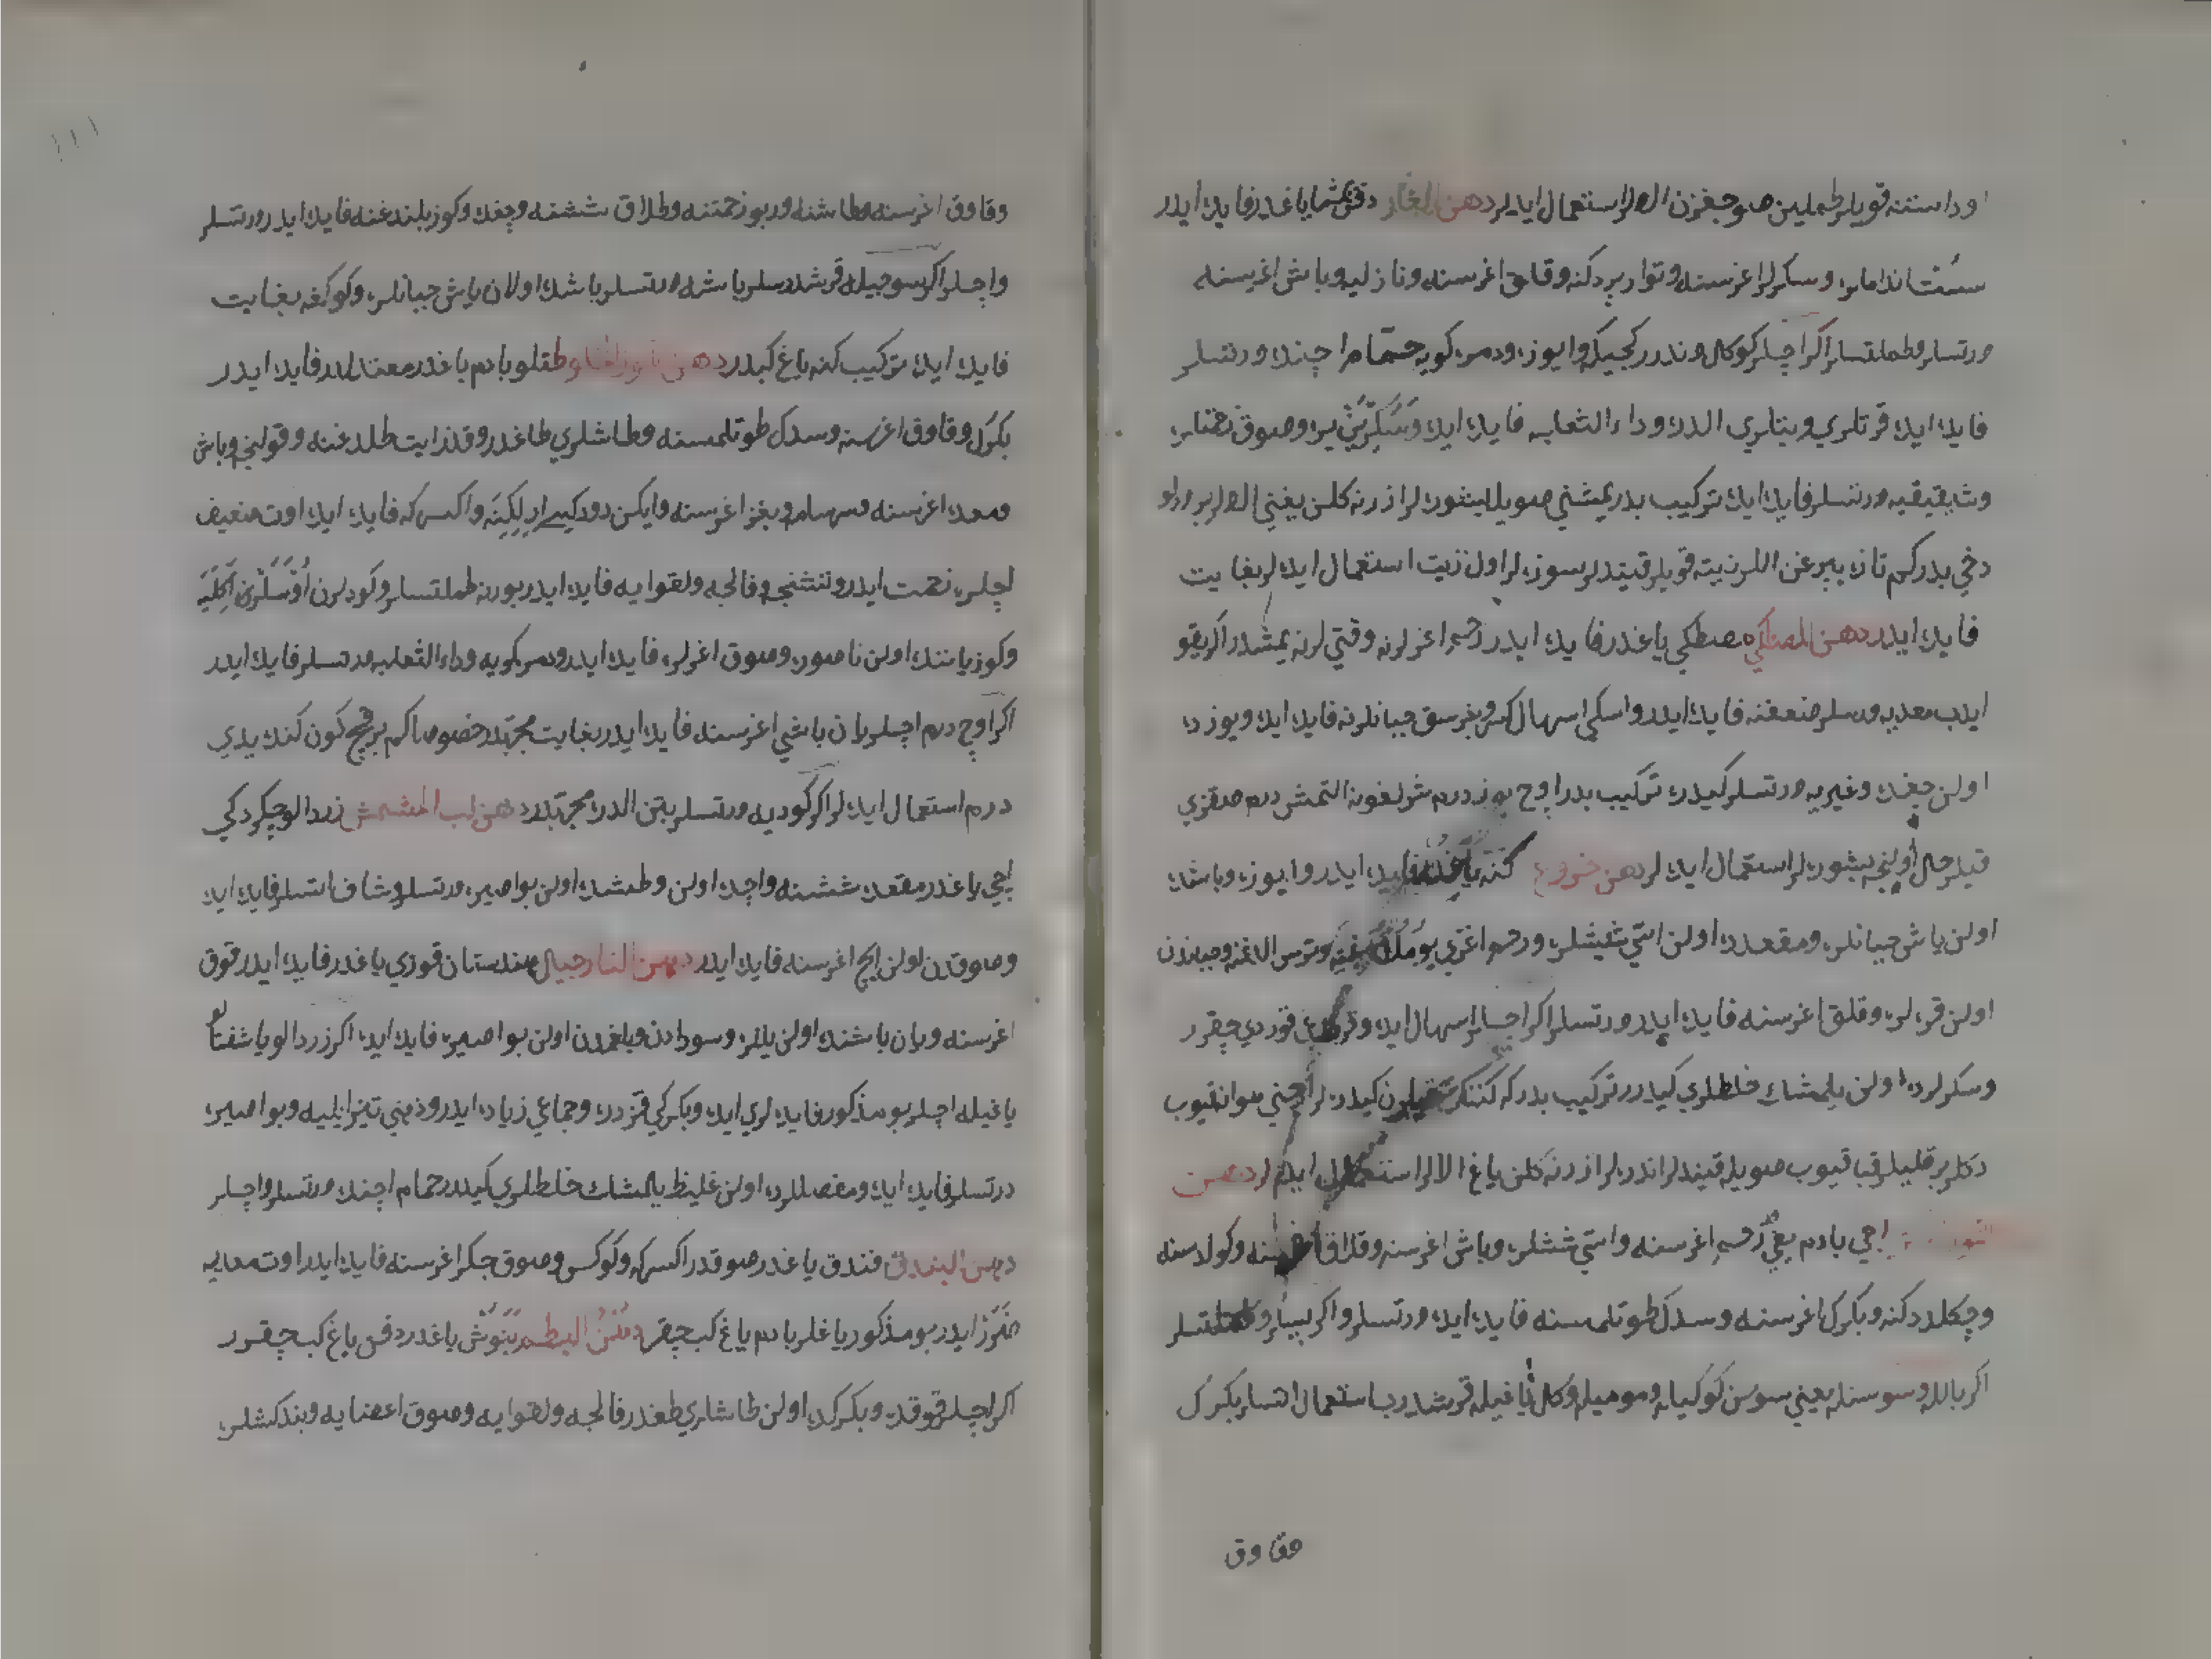 اود استنه قويلر طملين صو جغزن الورلر استعمال ايدلر دهن الغار دفني شما ياغدر فايده ايدر
سست اندامله وسكرلر اغرسنه وتوارير دكنه وقاق اغرسنه ونازليه وباش اغريسنه
ورتسلر وطملتسلر اكر اچلر كوكل دوندرر كجيكه وايوزه ودمره كويه حمام اچنده ورتسلر
فايده ايده قرتلري وبتلري الدره وداء الثعلبه فايده ايده وصوق زحمتلره
وشقيقيه ورتسلر فايده ايده تركيب بدر يمشني صويله بشورلر ازرنه كلن يغني الورلر بر دورلو
دخي بدركم تازه يپرغن اللر زيته قويلر قيندلر سوزلر اول زيت استعمال ايدلر بغايت
فايده ايدر دهن المصطكي مصطكي ياغدر فايده ايدر رحم اغرلرنه وقتي لرنه يمشدر اكر يقو
ايدب معديه ورسلر ضعفنه فايده ايدر واسكي اسهال كسر وبغرسق چبانلرنه فايده ايده ويوزده
اولن چغده وغيريه ورتسلر كيدره تركيب بدر اوچ يوز درم شرلغونه التمش درم صقزي
قيلر حل اولنجه بشورلر استعمال ايدلر دهن خروع كنه ياغدر فايده ايدر وايوزه وباشده
اولن ياش چبانلره ومقعدده اولن استي شيشلره ورحم اغزي يوملدغنه وترس الدغنه وچبانزدن
اولن قره لره وقلق اغرسنه فايده ايدر ورتسلر اكر اچسلر اسهال ايده وقرنده قوردي چقرر
وسكرلرده اولن يلمشك خلطلري كيدرر تركيب بدركه كننك قبقلرن كيدرلر اچني هوانقيوب
دكلر بر قليلر قبا قيوب صويله قيندلر اندرلر ازرنه كلن ياغ الالر استعمال ايدلر دهن
اللوز اجي بادم يغي رحم اغرسنه واستي ششلره وباش اغرسنه وقلاق اغرسنه وكولدسنه
وچكلددكنه وبكرك اغرسنه وسدك طوتلمسنه فايده ايده ورتسلر واكر ايچسلر وطملتسلر
اكر بالله وسوسنله يعني سوسن كوكيله وموميله وكل ياغيله قرشدرب استعمال اتسلر بكرك
وقاوق
١١١
وقاوق اغرسنه وطاشنه وربو زحمتنه وطلاق ششنه وچغده وكوز بلندغنه فايده ايدر ورتسلر
واچلر اكر سوجيله قرشدرسلر باشه ورتسلر باشده اولان ياش چبانلره وكوكغه بغايت
فايده ايده تركيب كنه ياغ كبدر دهن اللوز الحلو طتلو بادم ياغدر معتدلدر فايده ايدر
بكرك وقاوق اغرسنه وسدك طوتلمسنه وطاشلري طاغدر وقلندغنه وقولنجه وباش
ومعده اغرسنه وسرسامه وبغز اغرسنه واكسركه فايده ايده اوت ضعيف
اچلره زحمت ايدر وتشنجه وفالجه ولقوايه فايده ايدر بورنه طملتسلر وكودلرن
وكوز ياشنده اولن ناصوره وصوق اغرلره فايده ايدر ودمركويه وداء الثعلبه ورتسلر فايده ايدر
اكر اوچ درم اچلر يان باشي اغرسنه فايده ايدر بغايت مجربدر خصوصاكم بر قچ كون كنده يدي
درم استعمال ايدلر اكر كوديه ورتسلر بتن الدره مجربدر دهن لب المشمش زردالو چكردكي
اچي ياغدر مقعد ششنه واچده اولن وطشده اولن بواصيره ورتسلر وشاف اتسلر فايده ايده
وصوقدن اولن ايچ اغرسنه فايده ايدر دهن النارجيل هندستان قوزي ياغدر فايده ايدر قوق
اغرسنه ويان باشنده اولن يللره وسودادن وبلغمدن اولن بواصيره فايده ايده اكر زردالو يا شفتالو
ياغيله اچلر بو مذكور فايده لري ايده وبكركي قزدره وجماعي زياده ايدر وذهني تيز ايليه وبواصيره
درتسلر فايده ايده ومفصللرده اولن غليظ يلمشك خلطلري كيدر حمام اچنده ورتسلر واچلر
دهن البندق فندق ياغدر صوقدر اكسركه وكوكس وصوق جكر اغرسنه فايده ايدر اوت معديه
ضرر ايدر بو مذكور ياغلر بادم ياغ كب چقر دهن البطم بتوش ياغدر دفن ياغ كب چقرر
اكر اچلر قوقده وبكركده اولن طاشلري طغدر فالجه ولقوايه وصوق اعضايه وبند كشلره